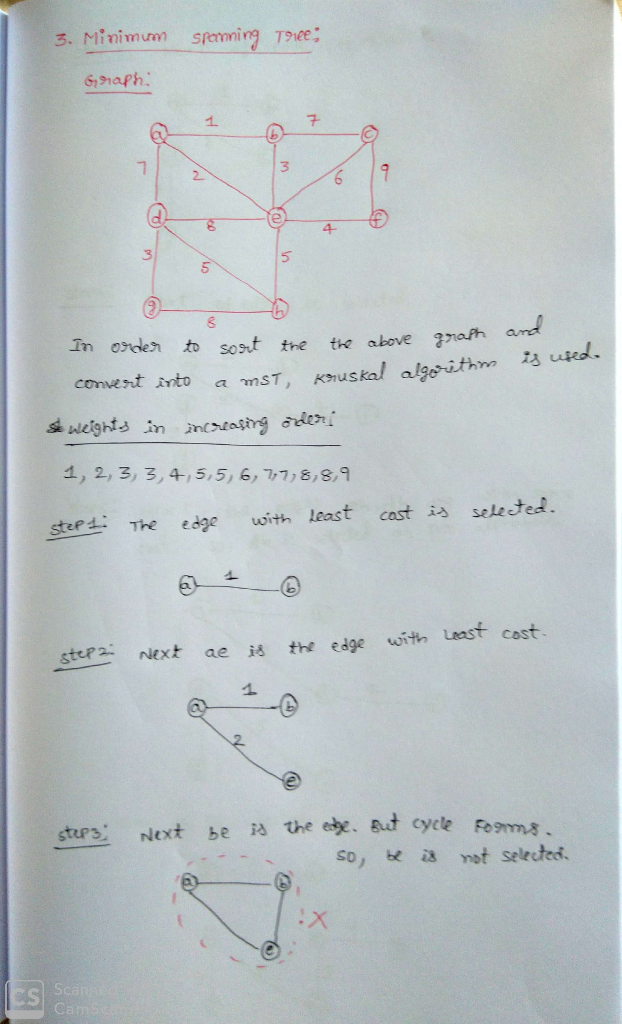 3. Minimum spanning Tree:
Graph:
a 1 b 7 c
7 2 3 6 9
d 8 e 4 f
3 5 5
g 8 h
In order to sort the the above graph and
convert into a MST, Kruskal algorithm is used.
weights in increasing order:
1, 2, 3, 3, 4, 5, 5, 6, 7, 7, 8, 8, 9
step 1: The edge with least cost is selected.
a 1 b
step 2: Next ae is the edge with least cost.
a 1 b
2
e
step 3: Next be is the edge. But cycle Forms.
so, be is not selected.
a b
: X
e
CS Scanned